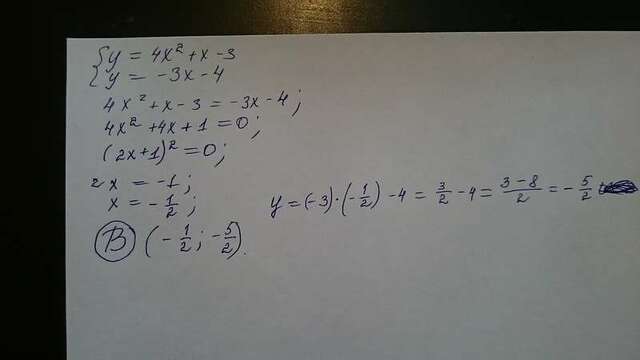 {y = 4x² + x - 3
{y = -3x - 4
4x² + x - 3 = -3x - 4;
4x² + 4x + 1 = 0;
(2x+1)² = 0;
2x = -1;
x = -1/2;
y = (-3)·(-1/2) - 4 = 3/2 - 4 = (3-8)/2 = -5/2
В) (-1/2; -5/2).